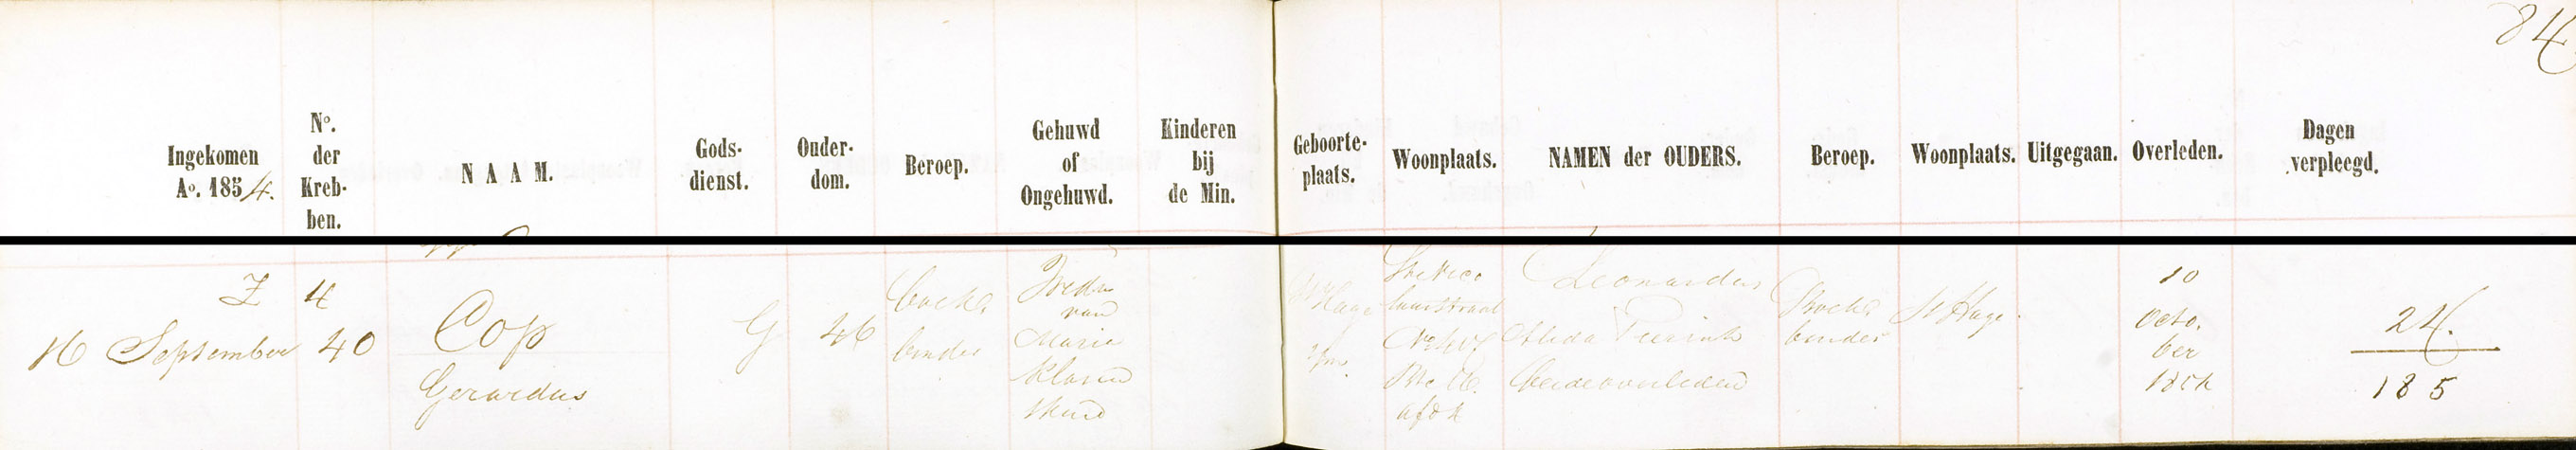 84
Ingekomen
Ao. 1854.
No.
der
Kreb-
ben.
N A A M.
Gods-
dienst.
Ouder-
dom.
Beroep.
Gehuwd
of
Ongehuwd.
Kinderen
bij
de Min.
Geboorte-
plaats.
Woonplaats.
NAMEN der OUDERS.
Beroep.
Woonplaats.
Uitgegaan.
Overleden.
Dagen
verpleegd.
Z 4
16 September 40
Cop
Gerardus
G
46
boek
binder
Wedr
van
Maria
Hage
Leonardus
Alida
beide overleden
Boek
binder
s Hage
10
Octo.
ber
1854
24.
185